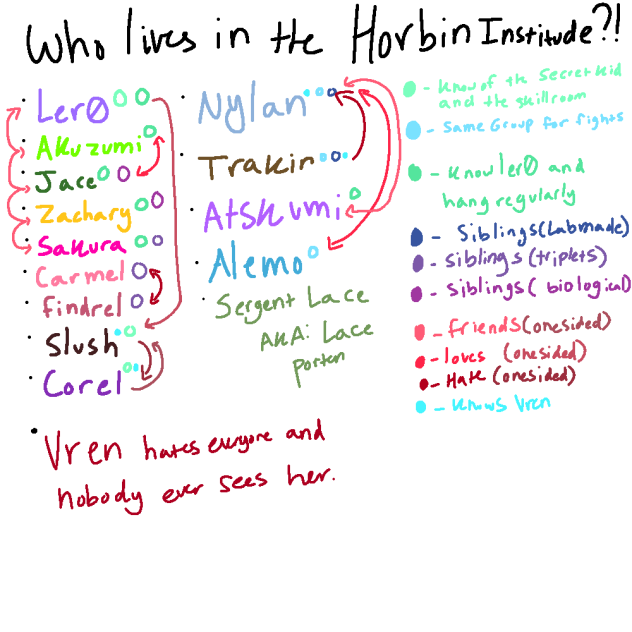 Who lives in the Horbin Institude?!
Ler0
Akuzumi
Jace
Zachary
Sakura
Carmel
findrel
Slush
Corel
Vren hates everyone and
nobody ever sees her.
Nylan
Trakin
Atskumi
Alemo
Sergent Lace
AKA: Lace
porten
- Know of the secret kid
and the skillroom
- Same Group for fights
- Know ler0 and
hang regularly
- Siblings (Labmade)
- siblings (triplets)
- siblings (biological)
- friends (onesided)
- loves (onesided)
- Hate (onesided)
- Knows Vren